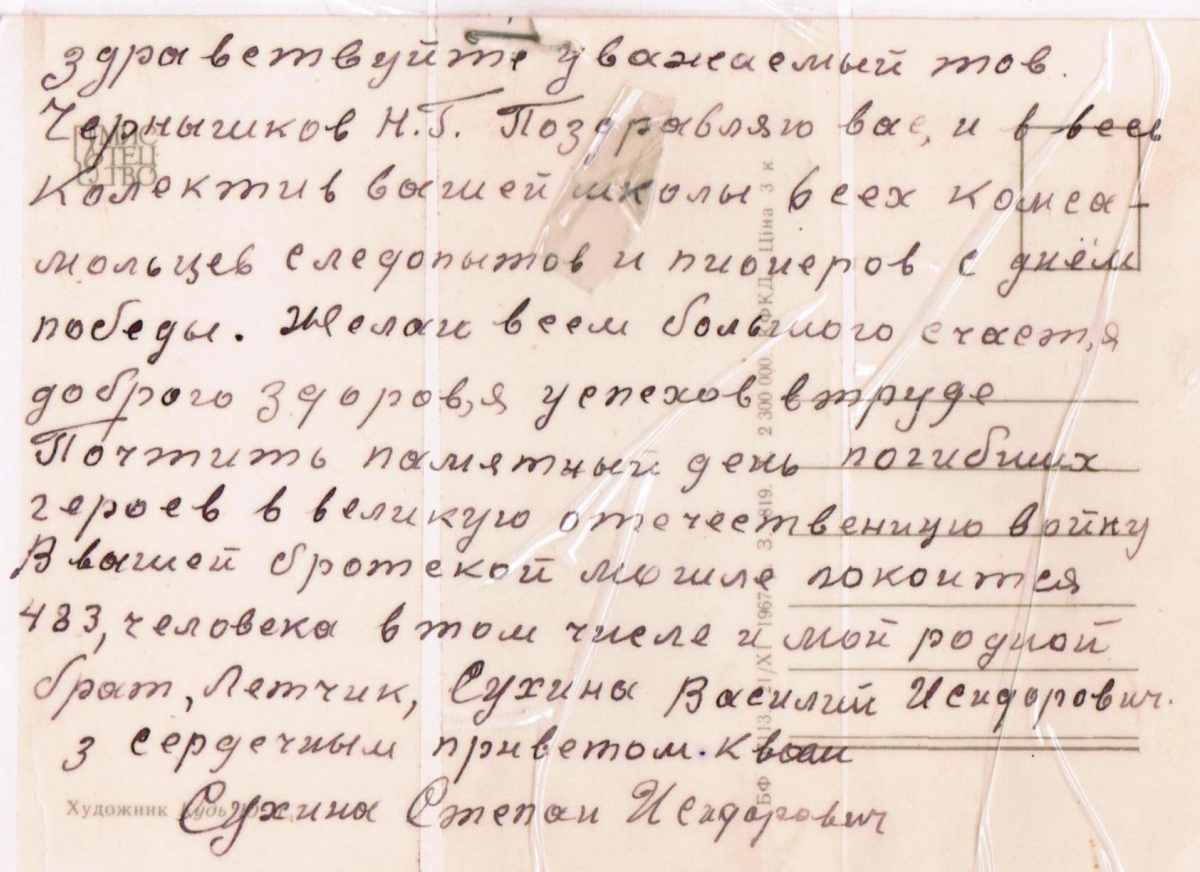 здравствуйте уважаемый тов.
Чернышков Н.Г. Поздравляю вас, и в весь
колектив вашей школы всех комса-
мольцев следопытов и пионеров с днём
победы. Желаю всем большого счаст,я
доброго здоров,я успехов в труде
Почтить памятный день погибших
героев в великую отечественную войну
В вашей братской могиле покоится
483, человека в том числе и мой родной
брат, Летчик, Сухина Василий Исидорович.
з сердечным приветом. к вам
Сухина Степан Исидорович
МИС
ТЕЦ
ТВО
Художник
БФ 3 819. 2 300 000. Ціна 3 к